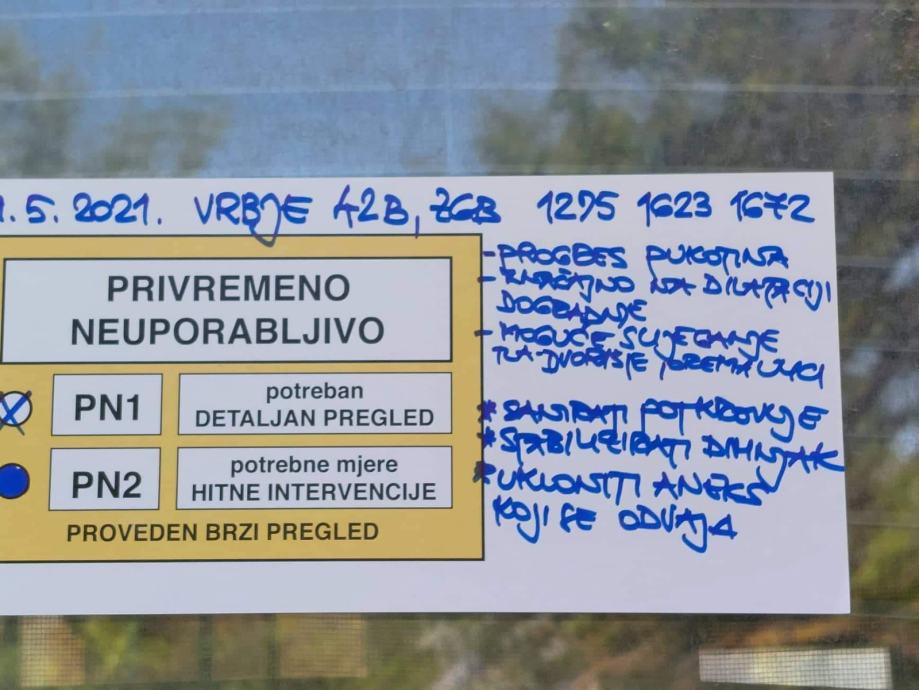 .5. 2021. VRBJE 42B, ZGB 1275 1623 1672
PRIVREMENO
NEUPORABLJIVO
PN1
potreban
DETALJAN PREGLED
PN2
potrebne mjere
HITNE INTERVENCIJE
PROVEDEN BRZI PREGLED
- PROGRES PUKOTINA
- ZNAČAJNO NA DILATACIJI
DOGRADNJE
- MOGUĆE SLIJEGANJE
TLA DVORIŠJE PREMA ULICI
* SANIRATI POTKROVLJE
* STABILIZIRATI DIMNJAK
* UKLONITI ANEKS
KOJI SE ODVAJA